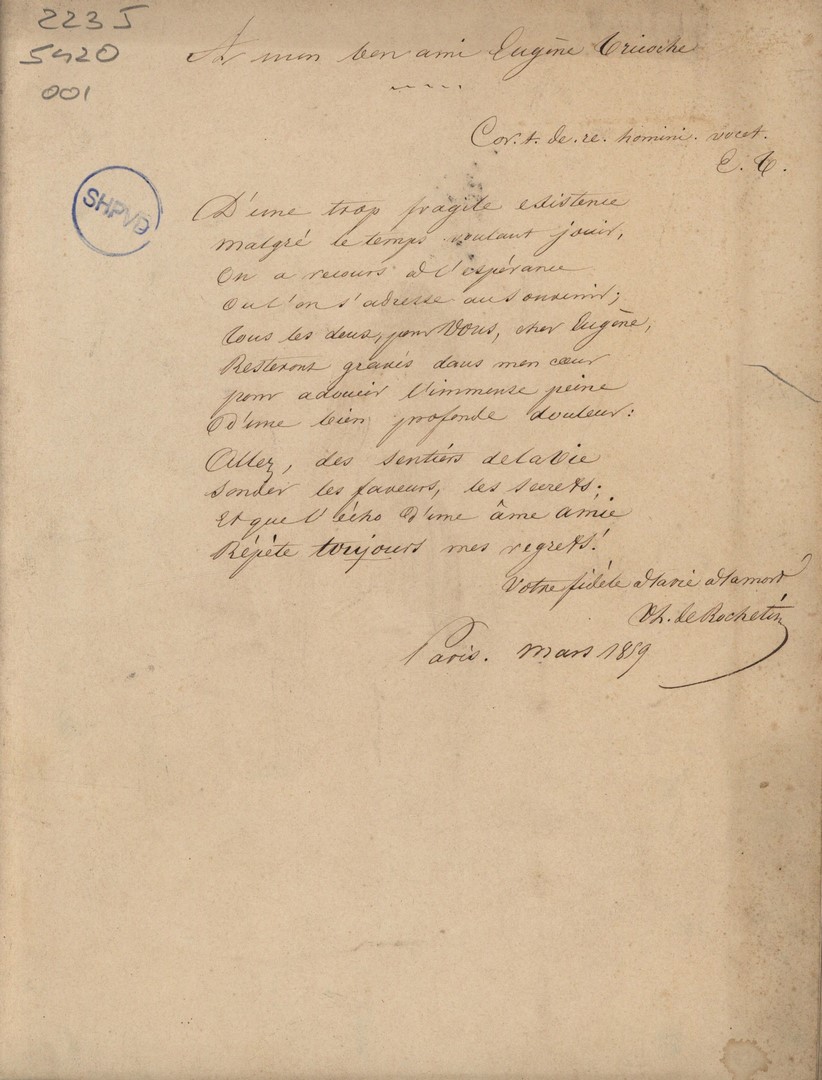 2235
5420
001
A mon bon ami Eugène Tricoche
Cor. t. de. re. homini. vocet.
E. T.
SHPVD
D'une trop fragile existence
Malgré le temps voulant jouir,
On a recours à l'espérance
Ou l'on s'adresse au souvenir;
Tous les deux, pour Vous, cher Eugène,
Resteront gravés dans mon cœur
pour adoucir l'immense peine
D'une bien profonde douleur:
Allez, des sentiers de la Vie
Sonder les faveurs, les secrets;
Et que l'écho d'une âme amie
Répète toujours mes regrets!
Votre fidèle à la vie à la mort
Th. de Rochetin
Paris. Mars 1859